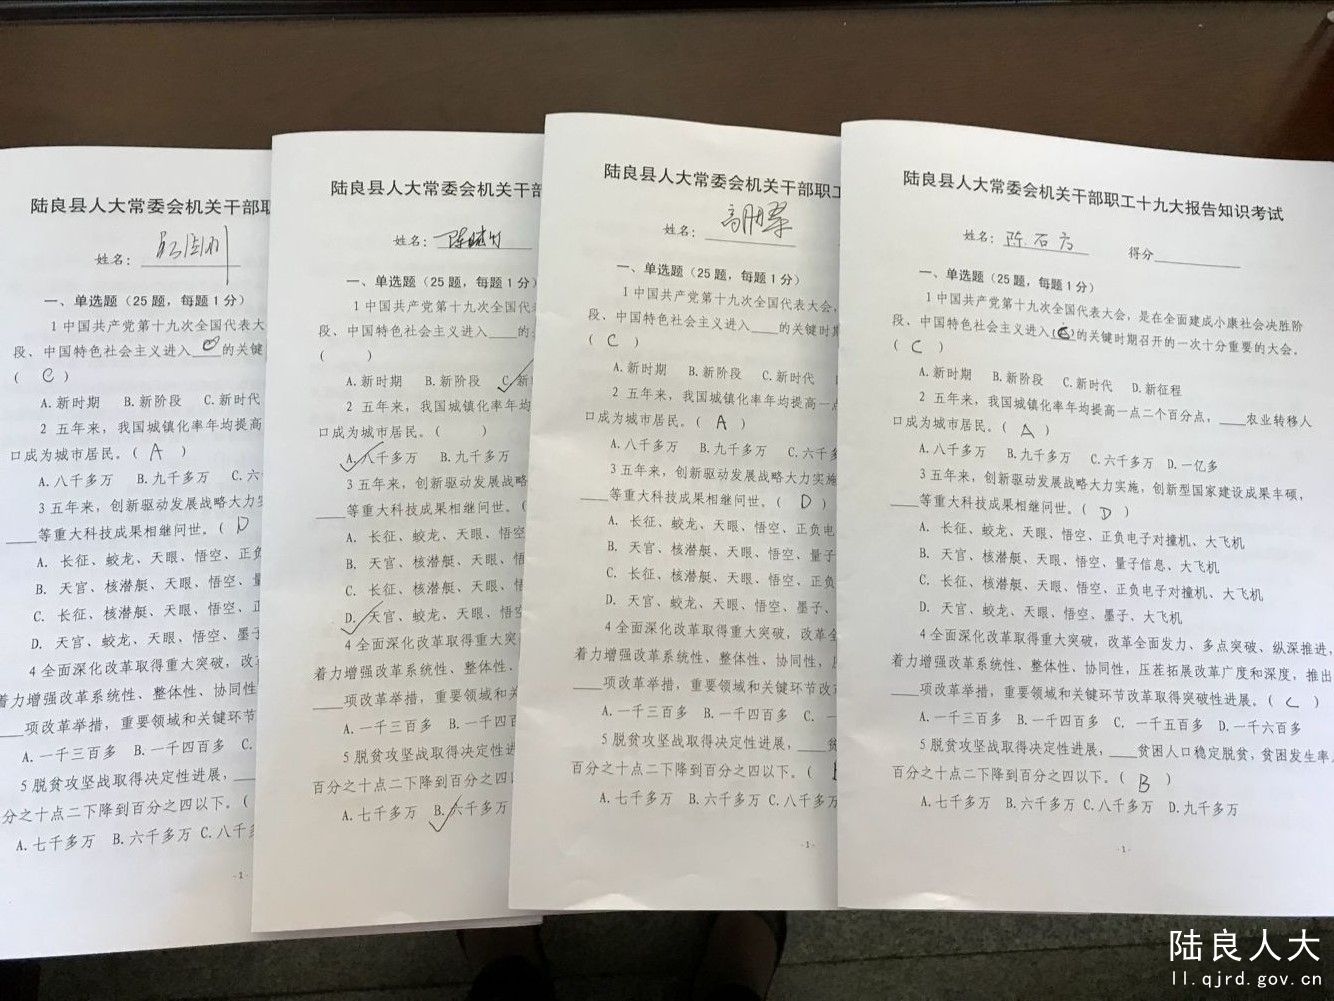 陆良县人大常委会机关干部职
姓名：
一、单选题（25题，每题1分）
1中国共产党第十九次全国代表大
段、中国特色社会主义进入____的关键
（ C ）
A.新时期 B.新阶段 C.新时代
2 五年来，我国城镇化率年均提高
口成为城市居民。（ A ）
A.八千多万 B.九千多万 C.六
3五年来，创新驱动发展战略大力实
____等重大科技成果相继问世。（ D
A. 长征、蛟龙、天眼、悟空、正负
B. 天宫、核潜艇、天眼、悟空、量
C. 长征、核潜艇、天眼、悟空、正
D. 天宫、蛟龙、天眼、悟空、墨子
4全面深化改革取得重大突破，改
着力增强改革系统性、整体性、协同性
____项改革举措，重要领域和关键环节
A.一千三百多 B.一千四百多 C.
5脱贫攻坚战取得决定性进展，____
分之十点二下降到百分之四以下。（
A.七千多万 B.六千多万 C.八千多
-1
陆良县人大常委会机关干部
姓名：
一、单选题（25题，每题1分）
1中国共产党第十九次全国代表
段、中国特色社会主义进入____的
（ ）
A.新时期 B.新阶段 C.新
2 五年来，我国城镇化率年均
口成为城市居民。（ ）
A.八千多万 B.九千多万
3五年来，创新驱动发展战略
____等重大科技成果相继问世。（
A. 长征、蛟龙、天眼、悟空
B. 天宫、核潜艇、天眼、悟
C. 长征、核潜艇、天眼、悟
D. 天宫、蛟龙、天眼、悟空
4全面深化改革取得重大突
着力增强改革系统性、整体性、
____项改革举措，重要领域和关
A.一千三百多 B.一千四百
5脱贫攻坚战取得决定性进
百分之十点二下降到百分之四以
A.七千多万 B.六千多万
陆良县人大常委会机关干部职工
姓名：高朋翠
一、单选题（25题，每题1分）
1中国共产党第十九次全国代表大会，
段、中国特色社会主义进入____的关键时期
（ C ）
A.新时期 B.新阶段 C.新时代
2 五年来，我国城镇化率年均提高一点
口成为城市居民。（ A ）
A.八千多万 B.九千多万 C.六千多
3五年来，创新驱动发展战略大力实施
____等重大科技成果相继问世。（ D ）
A. 长征、蛟龙、天眼、悟空、正负电
B. 天宫、核潜艇、天眼、悟空、量子
C. 长征、核潜艇、天眼、悟空、正负
D. 天宫、蛟龙、天眼、悟空、墨子、
4全面深化改革取得重大突破，改革全
着力增强改革系统性、整体性、协同性，压
____项改革举措，重要领域和关键环节改
A.一千三百多 B.一千四百多 C. 一
5脱贫攻坚战取得决定性进展，____贫
百分之十点二下降到百分之四以下。（
A.七千多万 B.六千多万 C.八千多万
-1-
陆良县人大常委会机关干部职工十九大报告知识考试
姓名：陈石方 得分
一、单选题（25题，每题1分）
1中国共产党第十九次全国代表大会，是在全面建成小康社会决胜阶
段、中国特色社会主义进入(C)的关键时期召开的一次十分重要的大会。
（ C ）
A.新时期 B.新阶段 C.新时代 D.新征程
2 五年来，我国城镇化率年均提高一点二个百分点，____农业转移人
口成为城市居民。（ A ）
A.八千多万 B.九千多万 C.六千多万 D.一亿多
3五年来，创新驱动发展战略大力实施，创新型国家建设成果丰硕，
____等重大科技成果相继问世。（ D ）
A. 长征、蛟龙、天眼、悟空、正负电子对撞机、大飞机
B. 天宫、核潜艇、天眼、悟空、量子信息、大飞机
C. 长征、核潜艇、天眼、悟空、正负电子对撞机、大飞机
D. 天宫、蛟龙、天眼、悟空、墨子、大飞机
4全面深化改革取得重大突破，改革全面发力、多点突破、纵深推进，
着力增强改革系统性、整体性、协同性，压茬拓展改革广度和深度，推出
____项改革举措，重要领域和关键环节改革取得突破性进展。（ C ）
A.一千三百多 B.一千四百多 C. 一千五百多 D.一千六百多
5脱贫攻坚战取得决定性进展，____贫困人口稳定脱贫，贫困发生率从
百分之十点二下降到百分之四以下。（ B ）
A.七千多万 B.六千多万 C.八千多万 D.九千多万
-1-
陆良人大
ll.qjrd.gov.cn